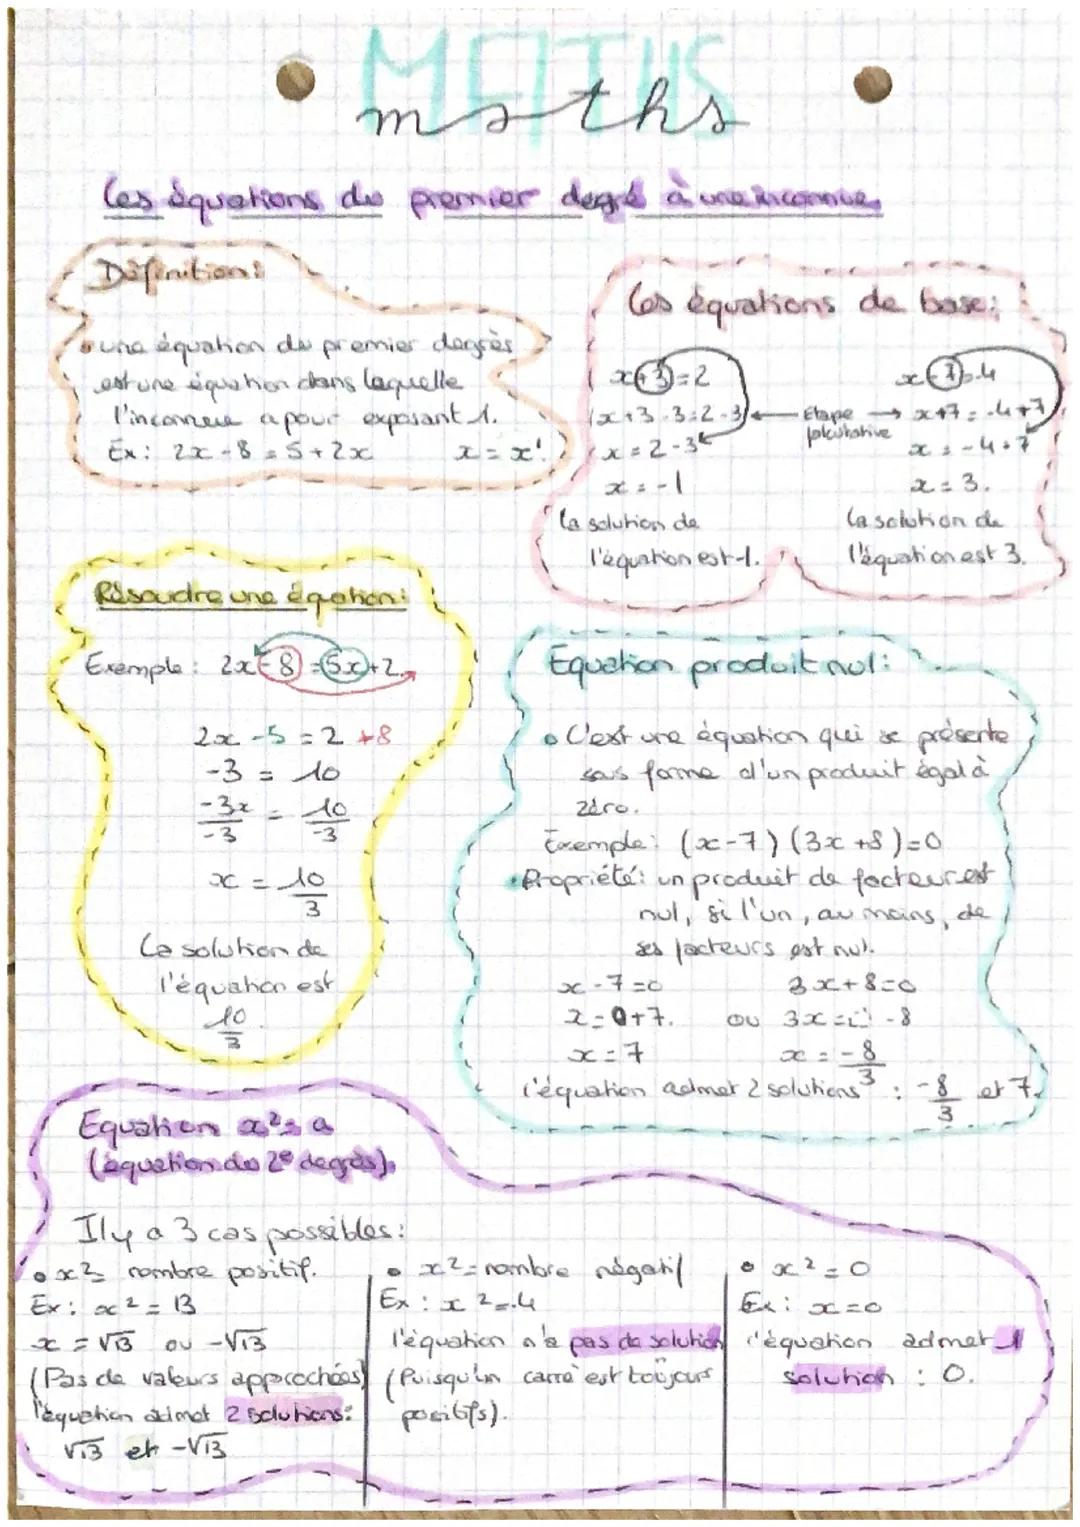 MATHS
maths
Les équations du premier degré à une inconnue
Définition:
• une équation du premier degrés
est une équation dans laquelle
l'inconnue a pour exposant 1.
Ex: 2x - 8 = 5 + 2x x = x¹
Les équations de base:
x + 3 = 2
x + 3 - 3 = 2 - 3
x = 2 - 3
x = -1
La solution de
l'équation est -1.
← Etape →
facultative
x - 7 = -4
x + 7 = -4 + 7
x = -4 + 7
x = 3.
La solution de
l'équation est 3.
Résoudre une équation:
Exemple: 2x - 8 = 5x + 2
2x - 5 = 2 + 8
-3 = 10
-3x/-3 = 10/-3
x = 10/3
La solution de
l'équation est
10/3.
Equation produit nul:
• C'est une équation qui se présente
sous forme d'un produit égal à
zéro.
Exemple: (x - 7) (3x + 8) = 0
• Propriété: un produit de facteur est
nul, si l'un, au moins, de
ses facteurs est nul.
x - 7 = 0 3x + 8 = 0
x = 0 + 7. ou 3x = -8
x = 7 x = -8/3
l'équation admet 2 solutions : -8/3 et 7.
Equation x² = a
(équation du 2e degrés).
Il y a 3 cas possibles:
• x² = nombre positif.
Ex: x² = 13
x = √13 ou -√13
(Pas de valeurs approchées)
l'équation admet 2 solutions:
√13 et -√13
• x² = nombre négatif
Ex: x² = -4
l'équation n'a pas de solution
(Puisqu'un carré est toujours
positifs).
• x² = 0
Ex: x = 0
l'équation admet 1
solution : 0.